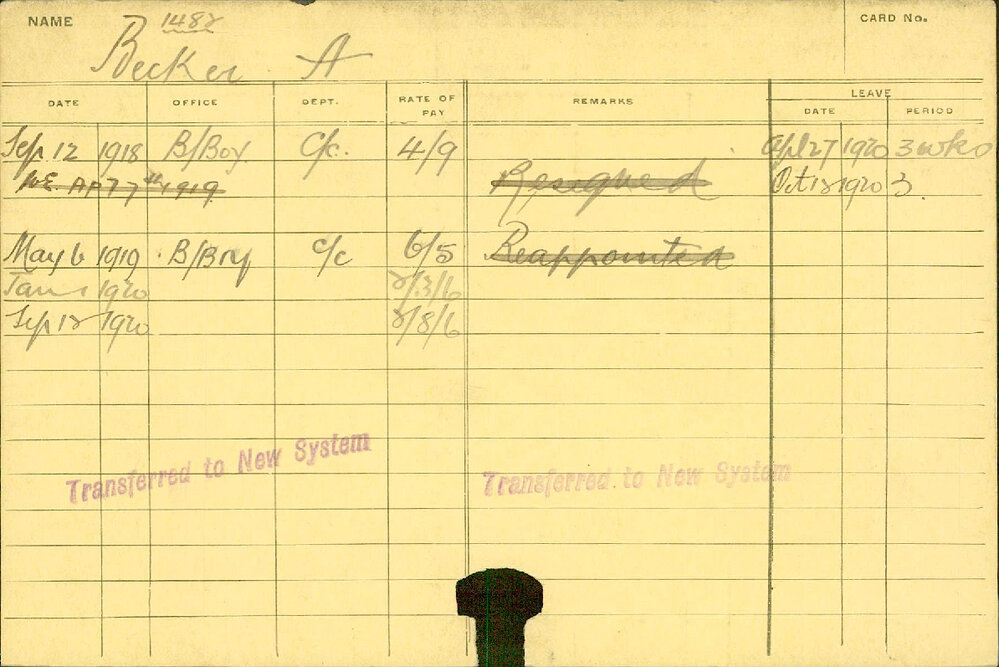 NAME 1482 CARD No.
Becker A
DATE OFFICE DEPT. RATE OF PAY REMARKS LEAVE
DATE PERIOD
Sep 12 1918 B/Boy C/c. 4/9 Apl 27 1920 3 wks
W.E. AP 7TH 1919 Resigned Oct 12 1920 3
May 6 1919 B/Boy c/c 6/5 Reappointed
Jan 1 1920 2/3/6
Sep 12 1920 2/8/6
Transferred to New System Transferred to New System